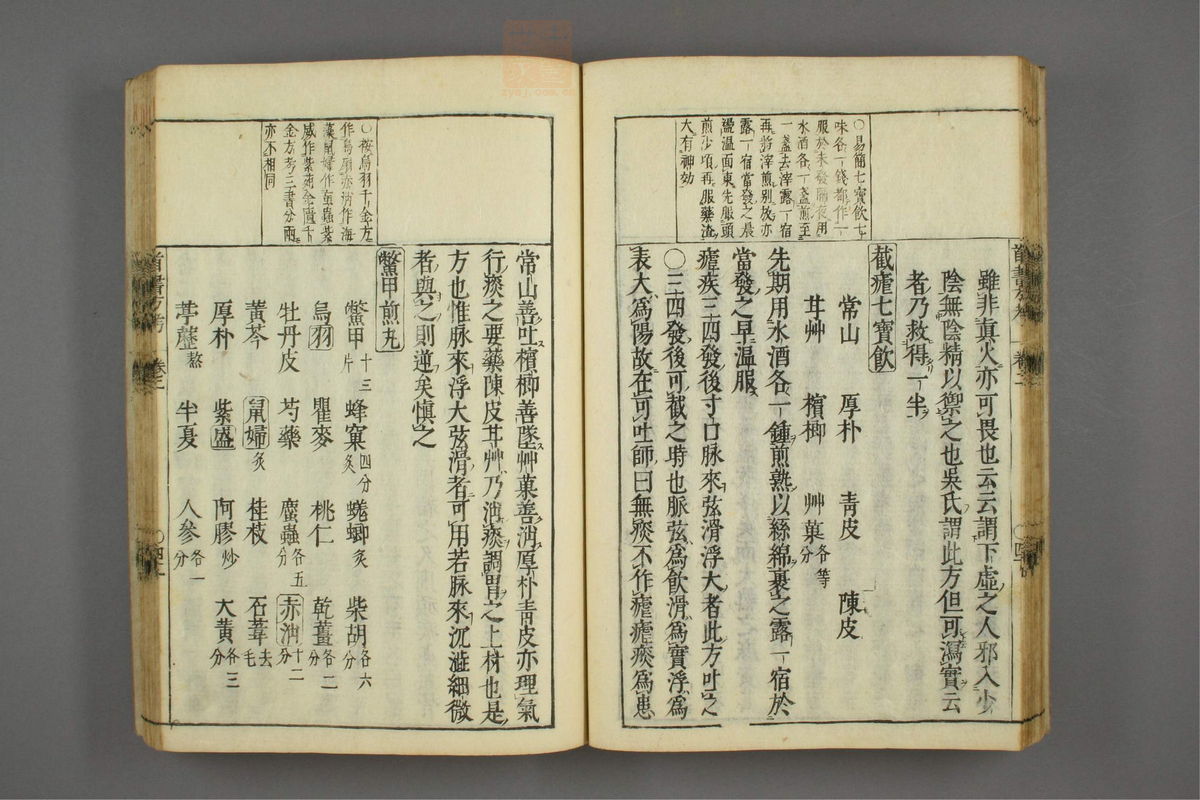 〇易簡七寶飲七
味各一錢都作一
服於未發隔夜用
水酒各一盞煎至
一盞去滓露一宿
再將滓煎別放亦
露一宿當發之晨
盪溫面東先服頭
煎少頃再服藥滓
大有神効
雖非真火亦可畏也云云謂下虛之人邪入少
陰無陰精以禦之也吳氏謂此方但可瀉實云
者乃救得一半
截瘧七寶飲
常山 厚朴 青皮 陳皮
甘艸 檳榔 艸菓各等分
先期用水酒各一鍾煎熟以絲綿裹之露一宿於
當發之早溫服
瘧疾三四發後寸口脉來弦滑浮大者此方吐之
〇三四發後可截之時也脈弦為飲滑為實浮為
表大為陽故在可吐師曰無痰不作瘧瘧痰為患
〇按烏羽千金方
作烏扇赤消作海
藻鼠婦作䗪蟲紫
威作紫菀金匱千
金方考三書分兩
亦不相同
常山善吐檳榔善墜艸菓善消厚朴青皮亦理氣
行痰之要藥陳皮甘艸乃消痰調胃之上材也是
方也惟脉來浮大弦滑者可用若脉來沉澁細微
者與之則逆矣慎之
鱉甲煎丸
鱉甲十三片 蜂窠四分炙 蜣螂炙 柴胡各六分
烏羽 瞿麥 桃仁 乾薑各二分
牡丹皮 芍藥 䗪蟲各五分 赤消十二分
黃芩 鼠婦炙 桂枝 石葦去毛
厚朴 紫盛 阿膠炒 大黃各三分
葶藶熬 半夏 人參各一分
卷三